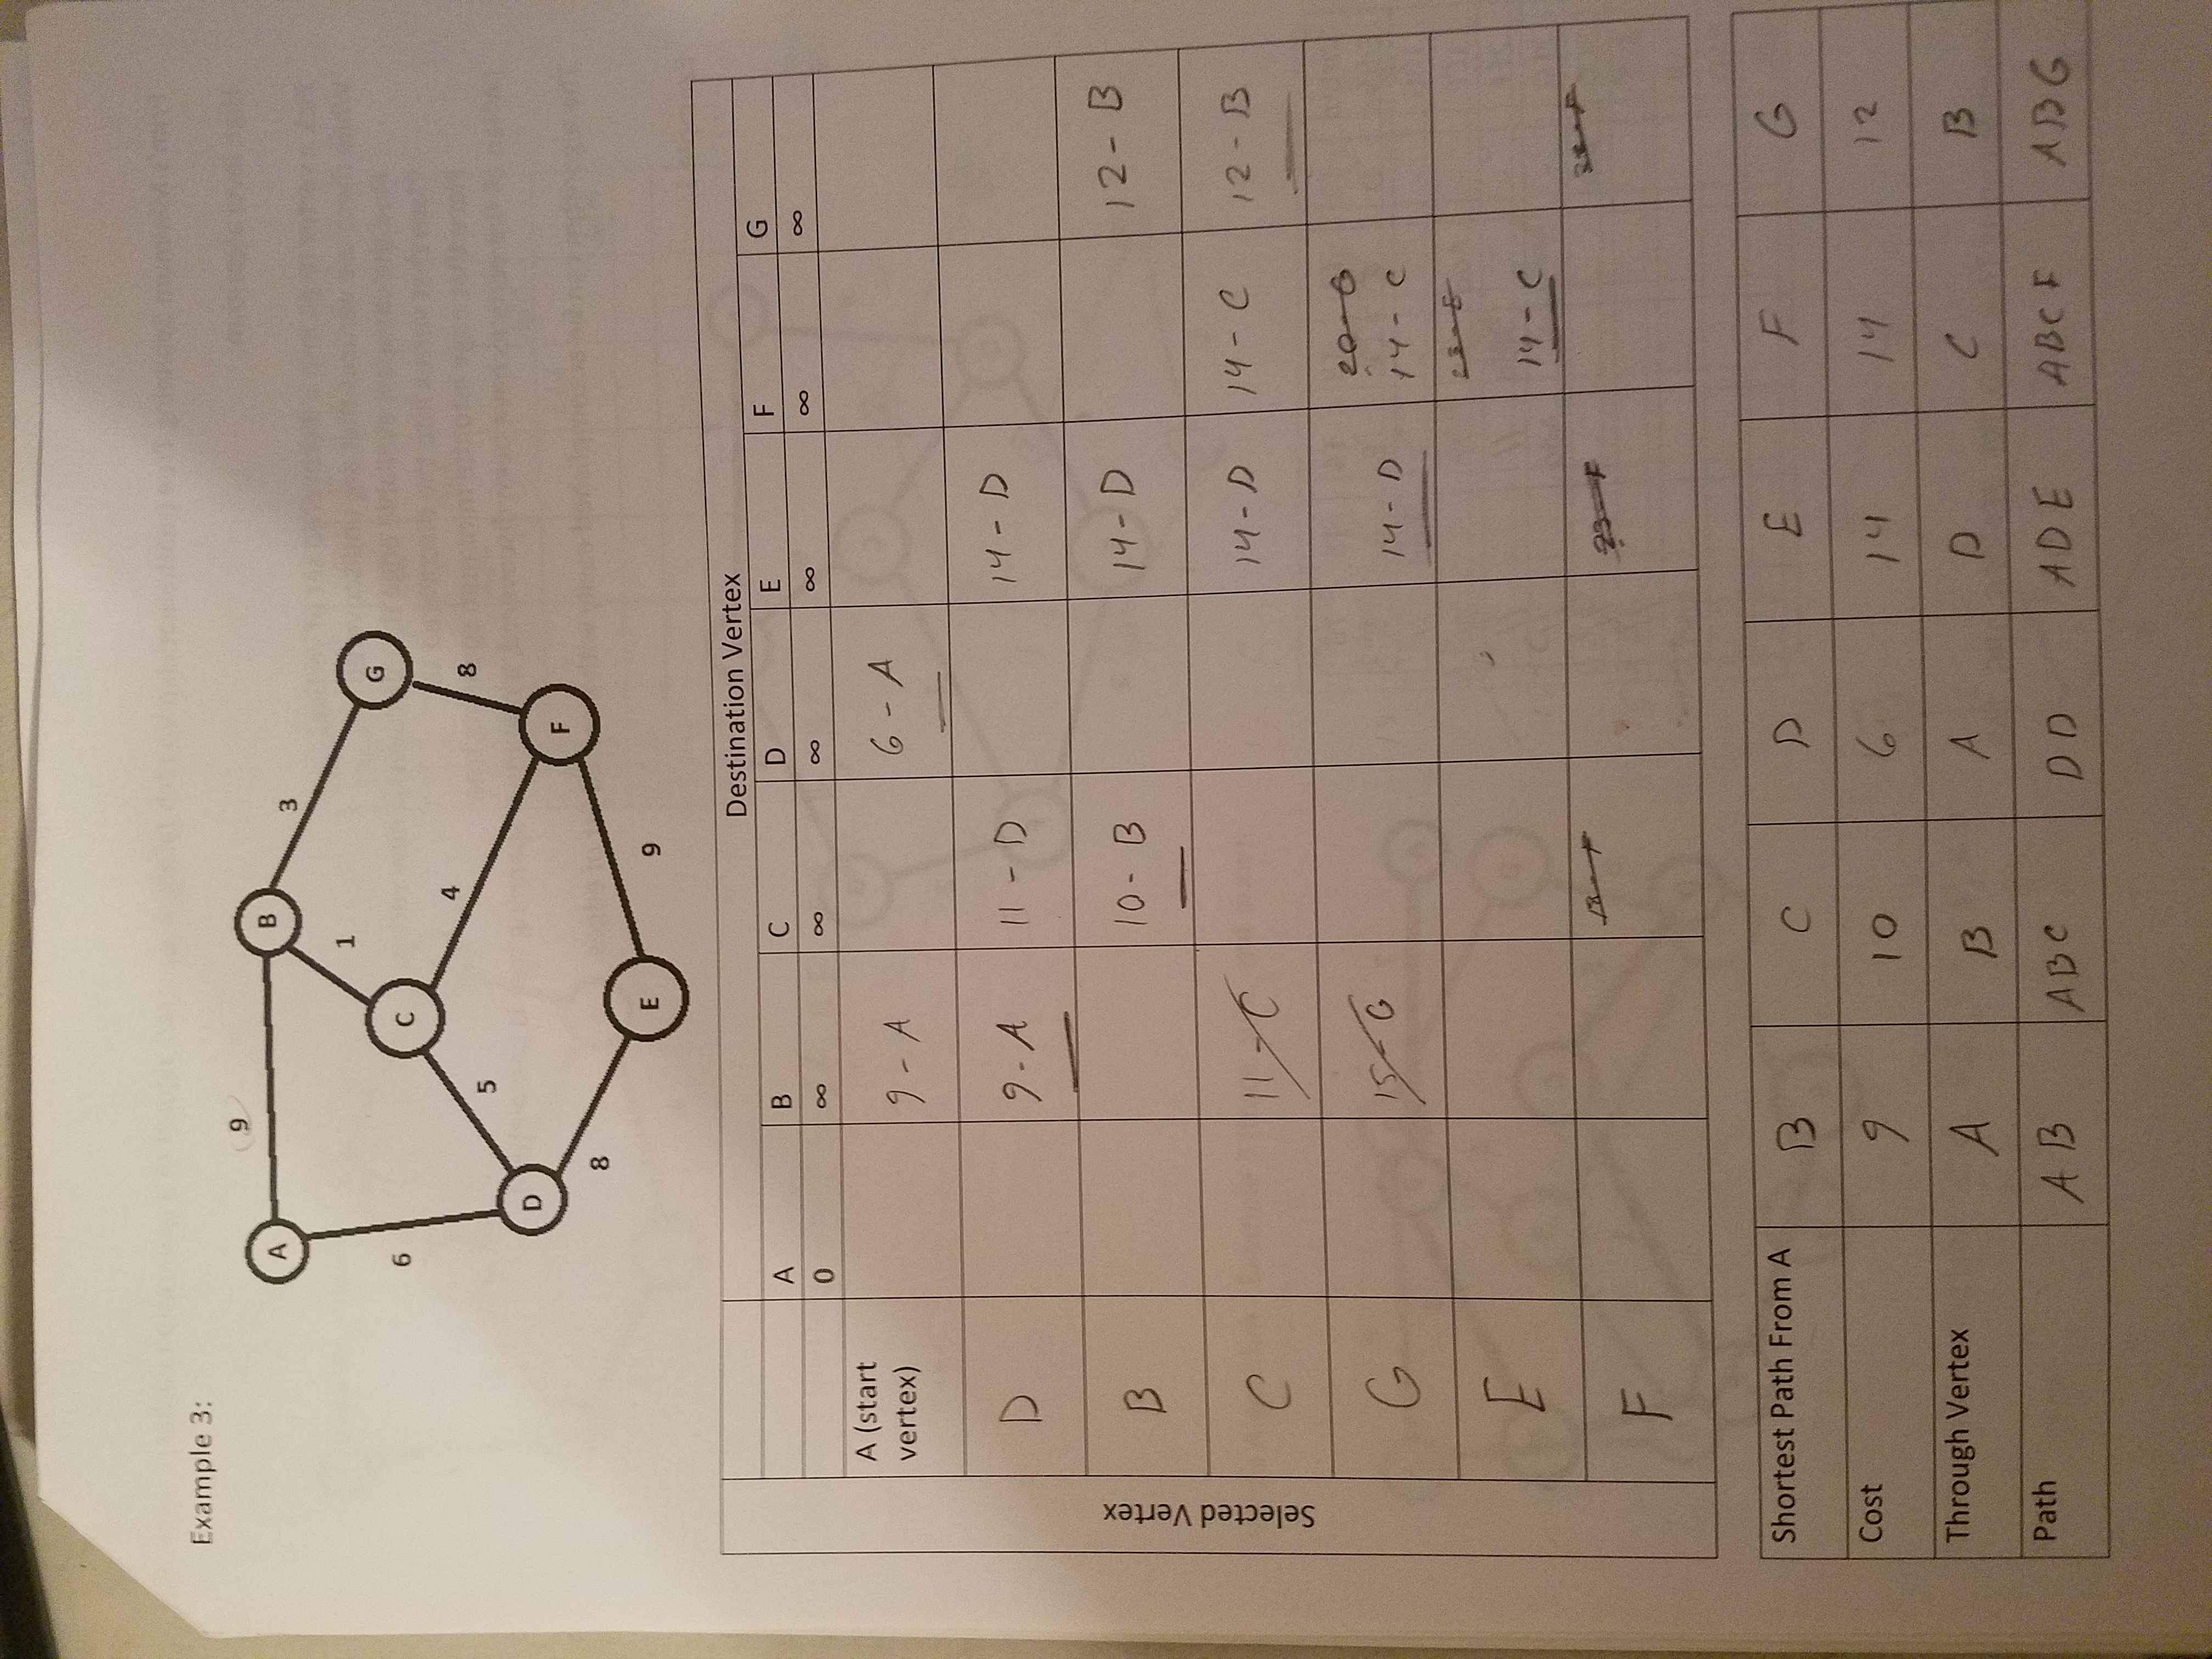 Example 3:
9
A
B
3
1
G
C
6
4
8
5
D
F
8
E
9
Destination Vertex
A B C D E F G
0 ∞ ∞ ∞ ∞ ∞ ∞
Selected Vertex
A (start
vertex)
9 - A 6 - A
D 9 - A 11 - D 14 - D
B 10 - B 14 - D 12 - B
C 11 - C 14 - D 14 - C 12 - B
20 - G
G 15 - G 14 - D 14 - C
E 14 - C
F 23 - F
Shortest Path From A B C D E F G
Cost 9 10 6 14 14 12
Through Vertex A B A D C B
Path AB ABC DD ADE ABCF ABG